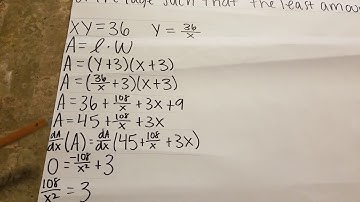 of the page such that the least amou
XY=36 Y=36/x
A=l·W
A=(Y+3)(x+3)
A=(36/x+3)(x+3)
A=36+108/x+3x+9
A=45+108/x+3x
dA/dx(A)=dA/dx(45+108/x+3x)
0=-108/x²+3
108/x²=3